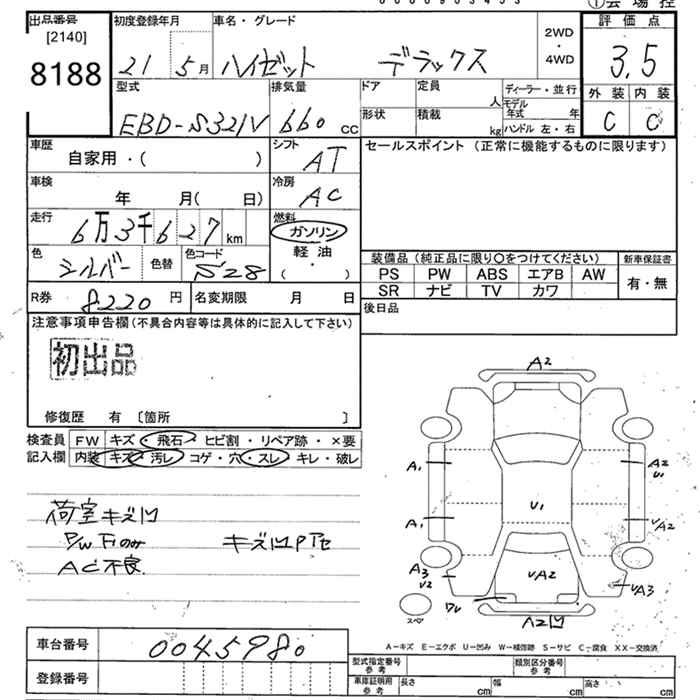 ①会場控
出品番号 初度登録年月 車名・グレード 評価点
[2140] 2WD
8188 21 5月 ハイゼット デラックス ・ 3.5
4WD
型式 排気量 ドア 定員 ディーラー・並行 外装 内装
人 モデル年式 年
EBD-S321V 660cc 形状 積載 kg ハンドル 左・右 C C
車歴 シフト セールスポイント (正常に機能するものに限ります)
自家用・( ) AT
車検 冷房
年 月( 日) AC
走行 燃料
6万3千627km ガソリン
色 色替 色コード 軽油 装備品(純正品に限り○をつけてください) 新車保証書
シルバー S28 ( ・ ) PS PW ABS エアB AW 有・無
SR ナビ TV カワ
R券 8220円 名変期限 月 日 後日品
注意事項申告欄(不具合内容等は具体的に記入して下さい)
初出品
修復歴 有 〔箇所 〕
検査員 FW キズ・飛石・ヒビ割・リペア跡・×要
記入欄 内装 キズ・汚レ・コゲ・穴・スレ・キレ・破レ
荷室キズ凹
P/W Fのみ キズ凹PTモ
AC不良
A2
A1 A2
U1
U1
A1 VA2
A3 VA2
V2 VA3
スペア A2凹
A-キズ E-エクボ U-凹み W-補修跡 S-サビ C-腐食 XX-交換済
車台番号 0045980
型式指定番号 類別区分番号
参考 参考
登録番号 車庫証明用 長さ 幅 高さ
参考 cm cm cm